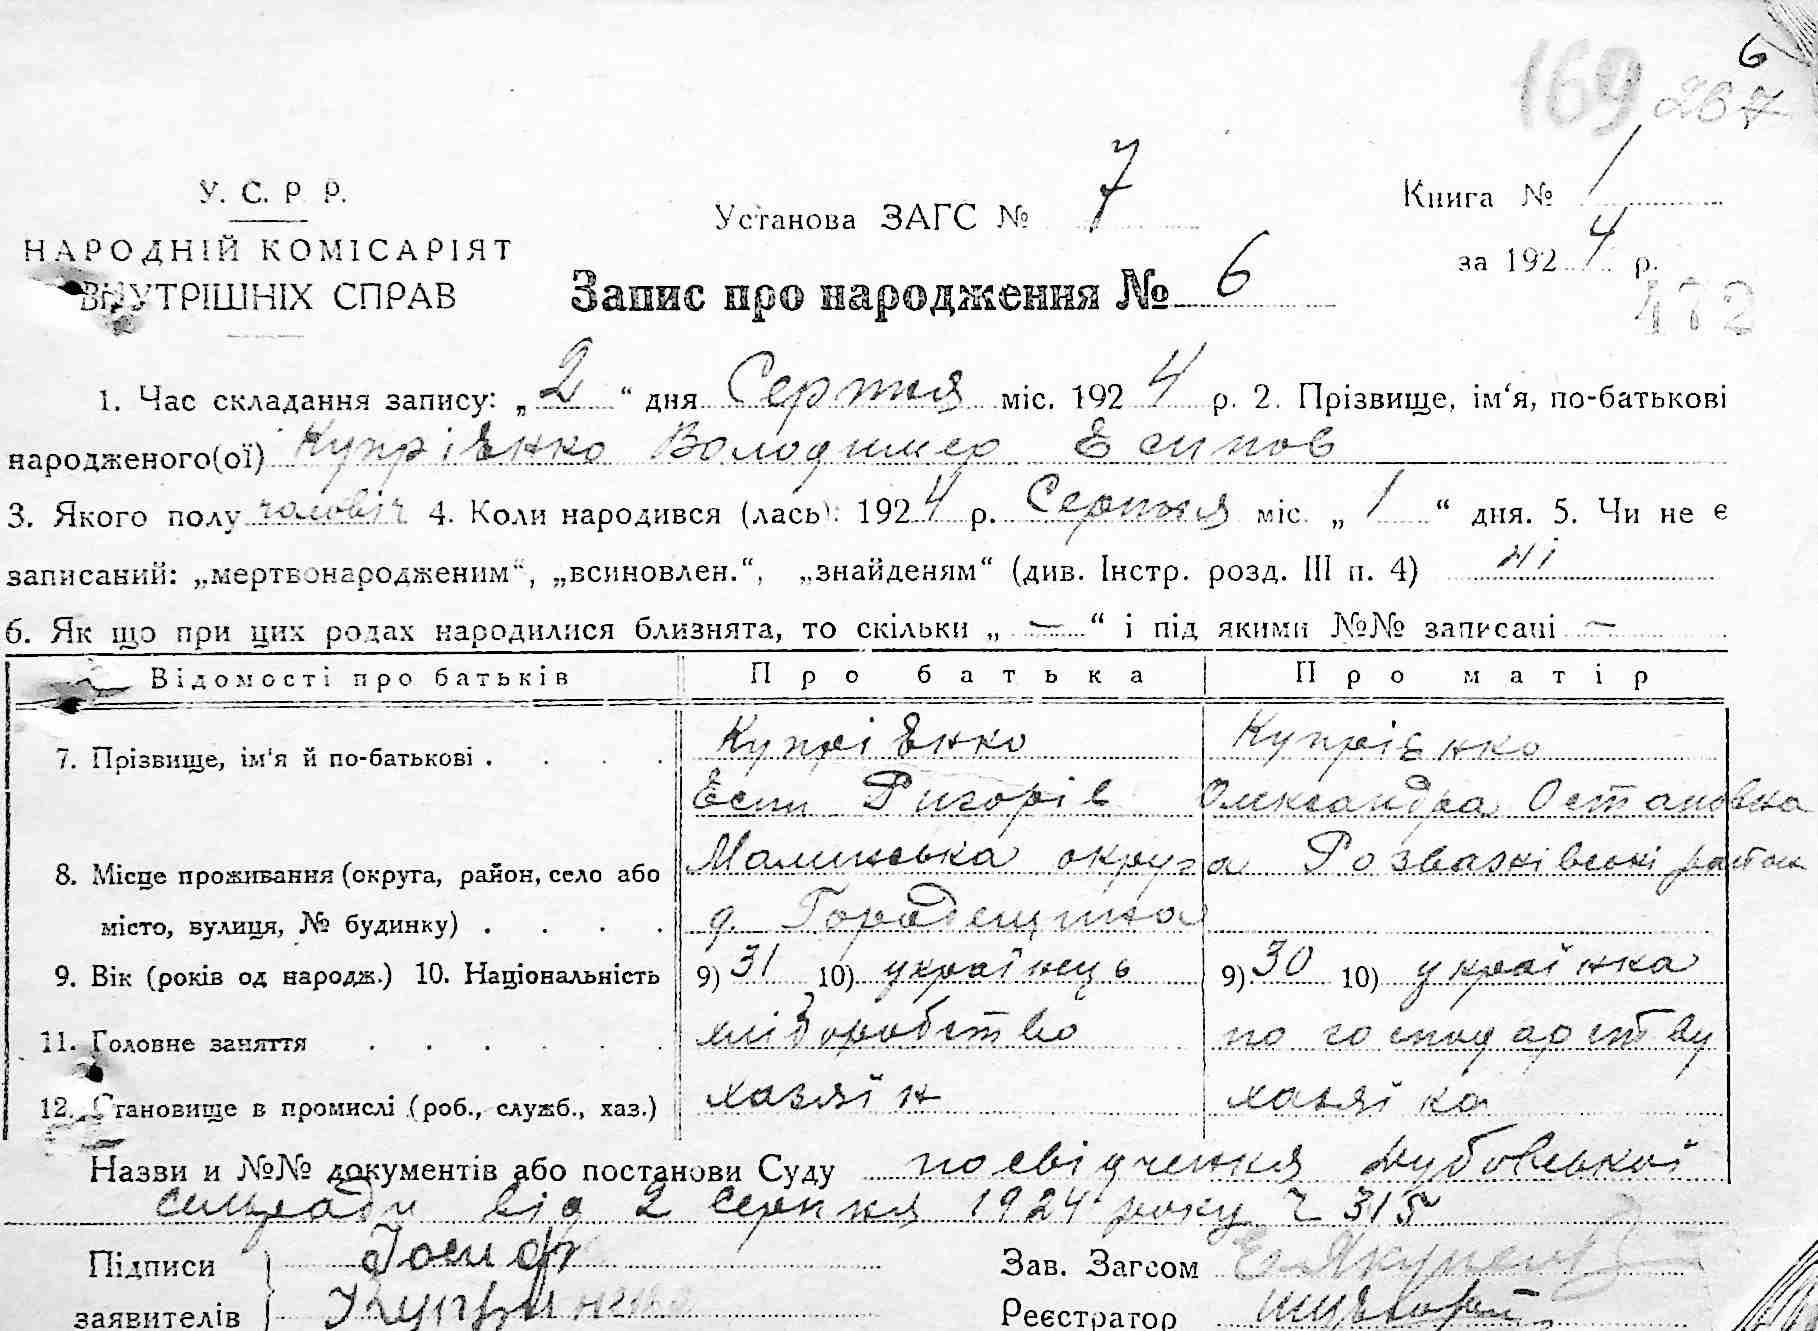 6
169 267
У. С. Р. Р.
НАРОДНІЙ КОМІСАРІЯТ
ВНУТРІШНІХ СПРАВ
Установа ЗАГС № 7
Книга № 1
за 1924 р.
Запис про народження № 6
472
1. Час складання запису: „2“ дня Серпня міс. 1924 р. 2. Прізвище, ім‘я, по-батькові
народженого(ої) Купрієнко Володимер Есипов
3. Якого полу чоловіч 4. Коли народився (лась): 1924 р. Серпня міс. „1“ дня. 5. Чи не є
записаний: „мертвонародженим“, „всиновлен.“, „знайденям“ (див. Інстр. розд. III п. 4) ні
6. Як що при цих родах народилися близнята, то скільки „ — “ і під якими №№ записані —
Відомості про батьків Про батька Про матір
7. Прізвище, ім'я й по-батькові . . . . Купрієнко Купрієнко
Есип Ригорів Олександра Остаповна
8. Місце проживання (округа, район, село або Малинська округа Розважівські район
місто, вулиця, № будинку) . . . . д. Городещина
9. Вік (років од народж.) 10. Національність 9) 31 10) українець 9) 30 10) українка
11. Головне заняття . . . . . . хліборобство по господарству
12. Становище в промислі (роб., служб., хаз.) хазяїн хазяїка
Назви и №№ документів або постанови Суду посвідчення Дубовської
сельради від 2 серпня 1924 року Ч 315
Підписи Іосиф Зав. Загсом
заявителів Реєстратор